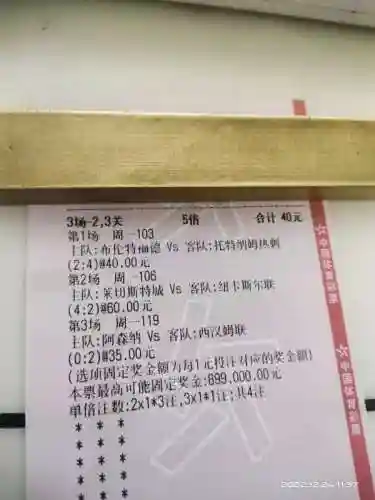 3场-2,3关 5倍 合计 40元
第1场 周一103
主队:布伦特福德 Vs 客队:托特纳姆热刺
(2:4)@40.00元
第2场 周一106
主队:莱切斯特城 Vs 客队:纽卡斯尔联
(4:2)@60.00元
第3场 周一119
主队:阿森纳 Vs 客队:西汉姆联
(0:2)@35.00元
(选项固定奖金额为每1元投注对应的奖金额)
本票最高可能固定奖金:899,000.00元
单倍注数:2x1*3注,3x1*1注;共4注
* * *
* * *
* * *
* * *
* * *
中国体育彩票